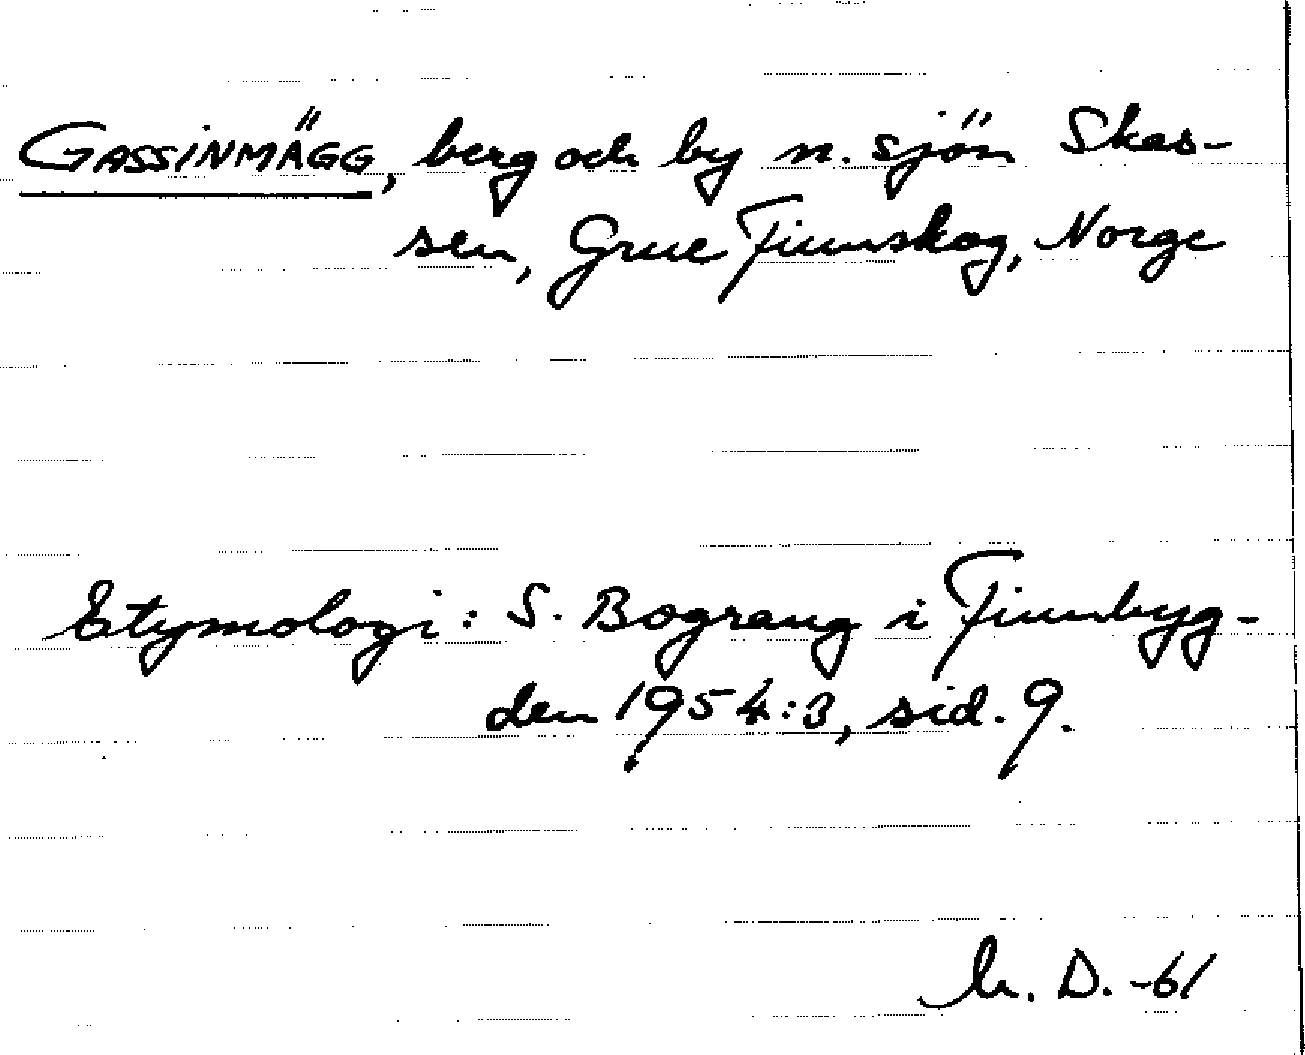 GASSINMÄGG, berg och by n. sjön Skas-
sen, Grue Finnskog, Norge
Etymologi: S. Bograng i Finnbyg-
den 1954:3, sid. 9.
D. -61